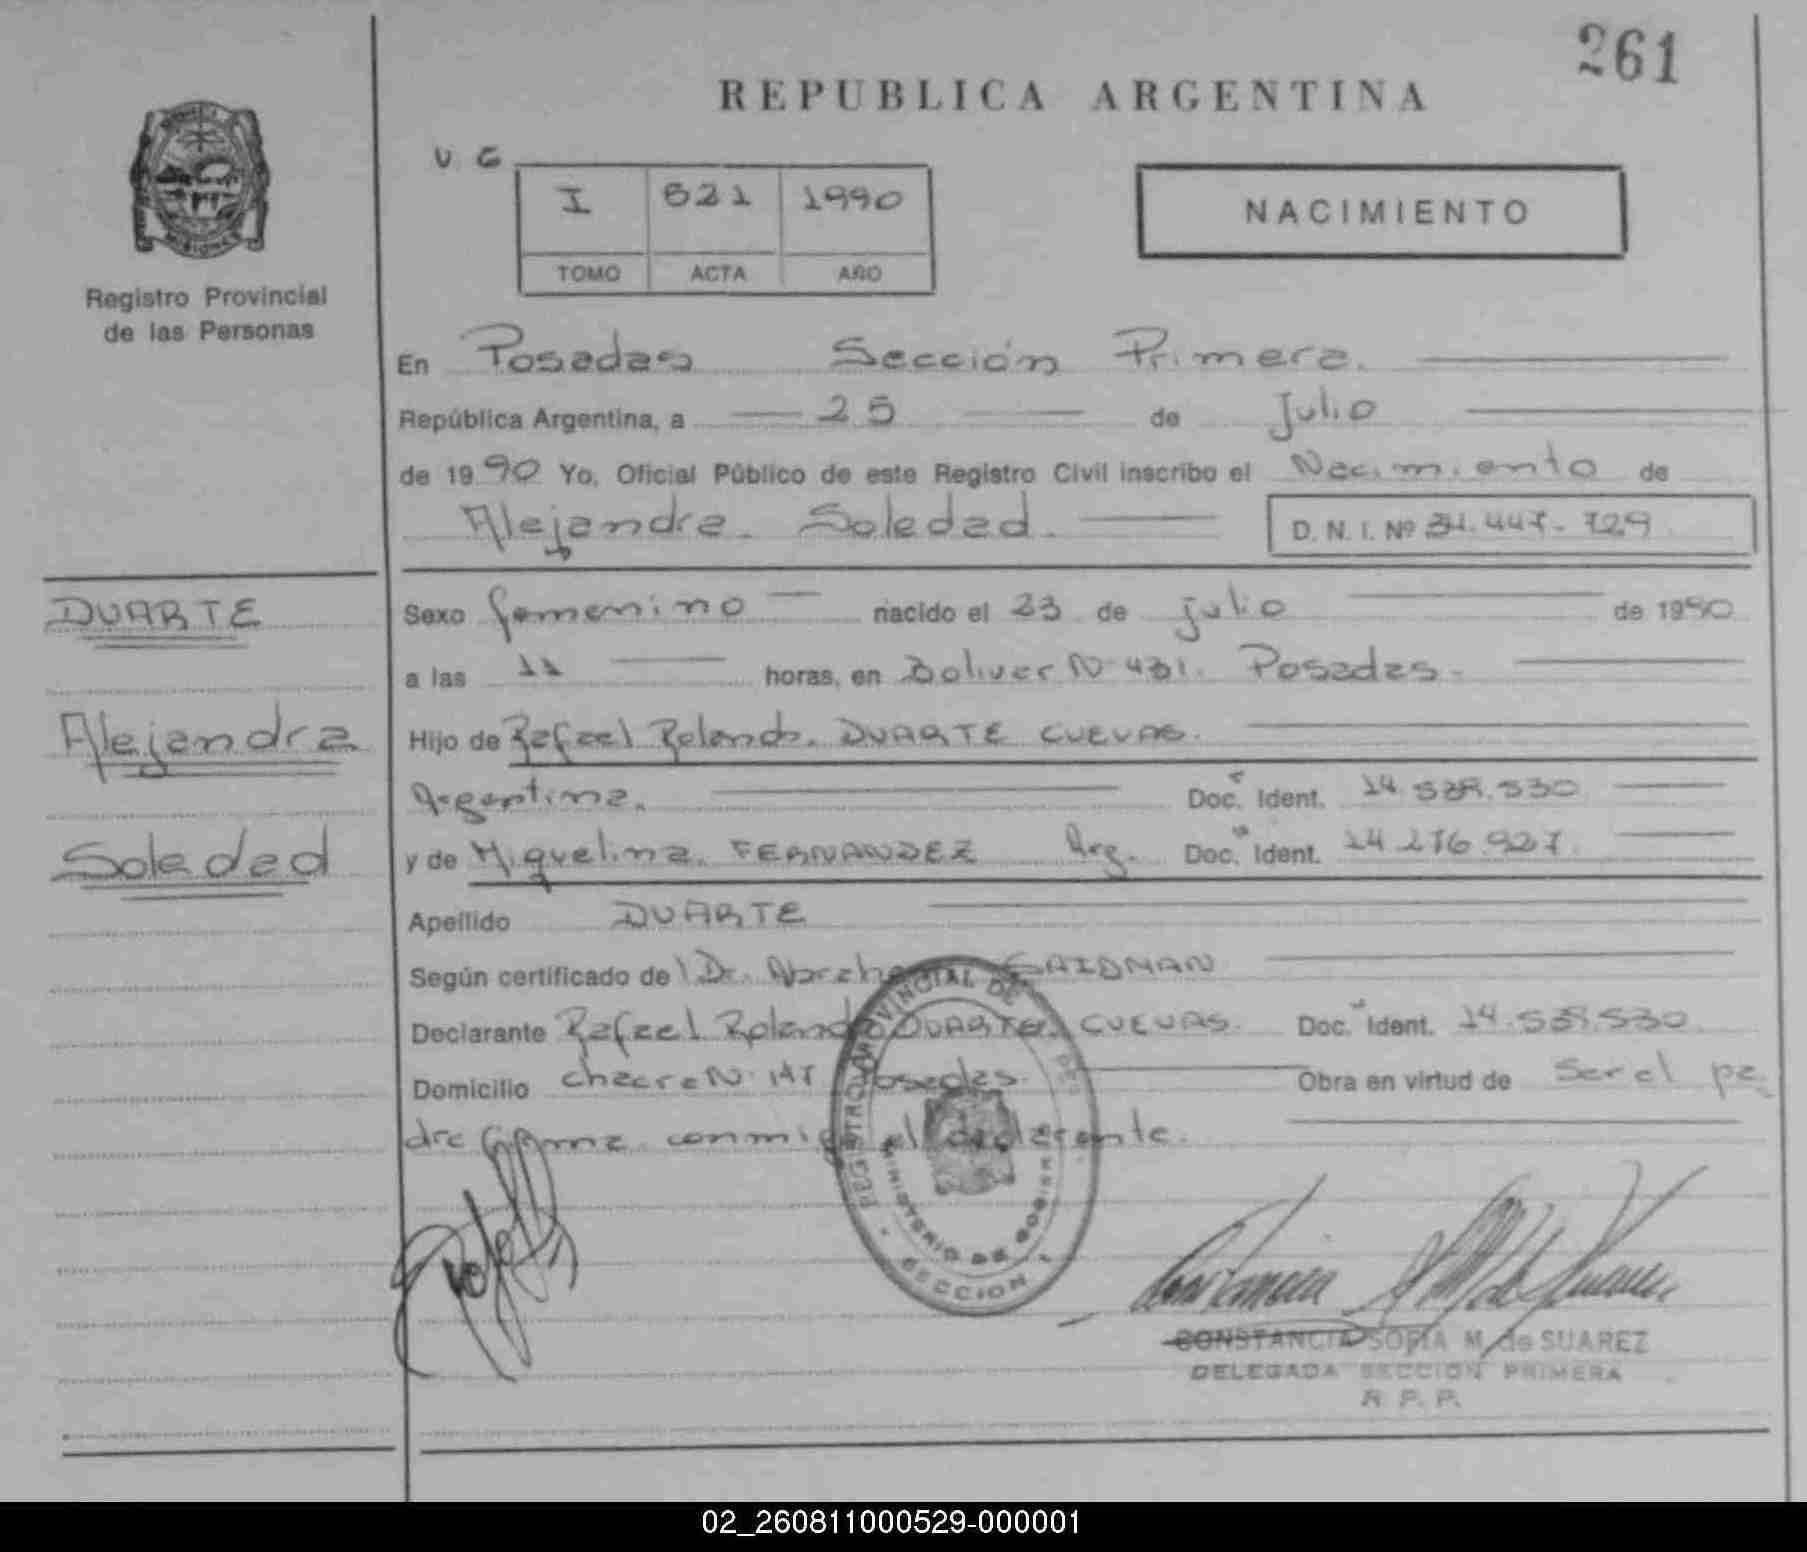 261
REPUBLICA ARGENTINA
V. G
I 521 1990
TOMO ACTA AÑO
NACIMIENTO
MISIONES
Registro Provincial
de las Personas
En Posadas Sección Primera.
República Argentina, a 25 de Julio
de 1990 Yo, Oficial Público de este Registro Civil inscribo el Nacimiento de
Alejandra Soledad
D. N. I. Nº
DUARTE
Alejandra
Soledad
Sexo femenino nacido el 23 de julio de 1990
a las 11 horas, en Bolivar N 431. Posadas
Hijo de Rafael Rolando. DUARTE CUEVAS.
Argentina. Doc. Ident. 14.538.530
y de Miguelina. FERNANDEZ Arg. Doc. Ident. 14 276.927.
Apellido DUARTE
Según certificado del Dr. SAIDMAN
Declarante Rafael Rolando DUARTE CUEVAS. Doc. Ident. 14.538.530
Domicilio chacra N. 147 Posadas. Obra en virtud de ser el pa
dre firma conmigo el declarante.
REGISTRO PROVINCIAL DE
MINISTERIO DE GOBIER
SECCION 1
CONSTANCIA SOFIA M. de SUAREZ
DELEGADA SECCION PRIMERA
R. P. P.
02_260811000529-000001